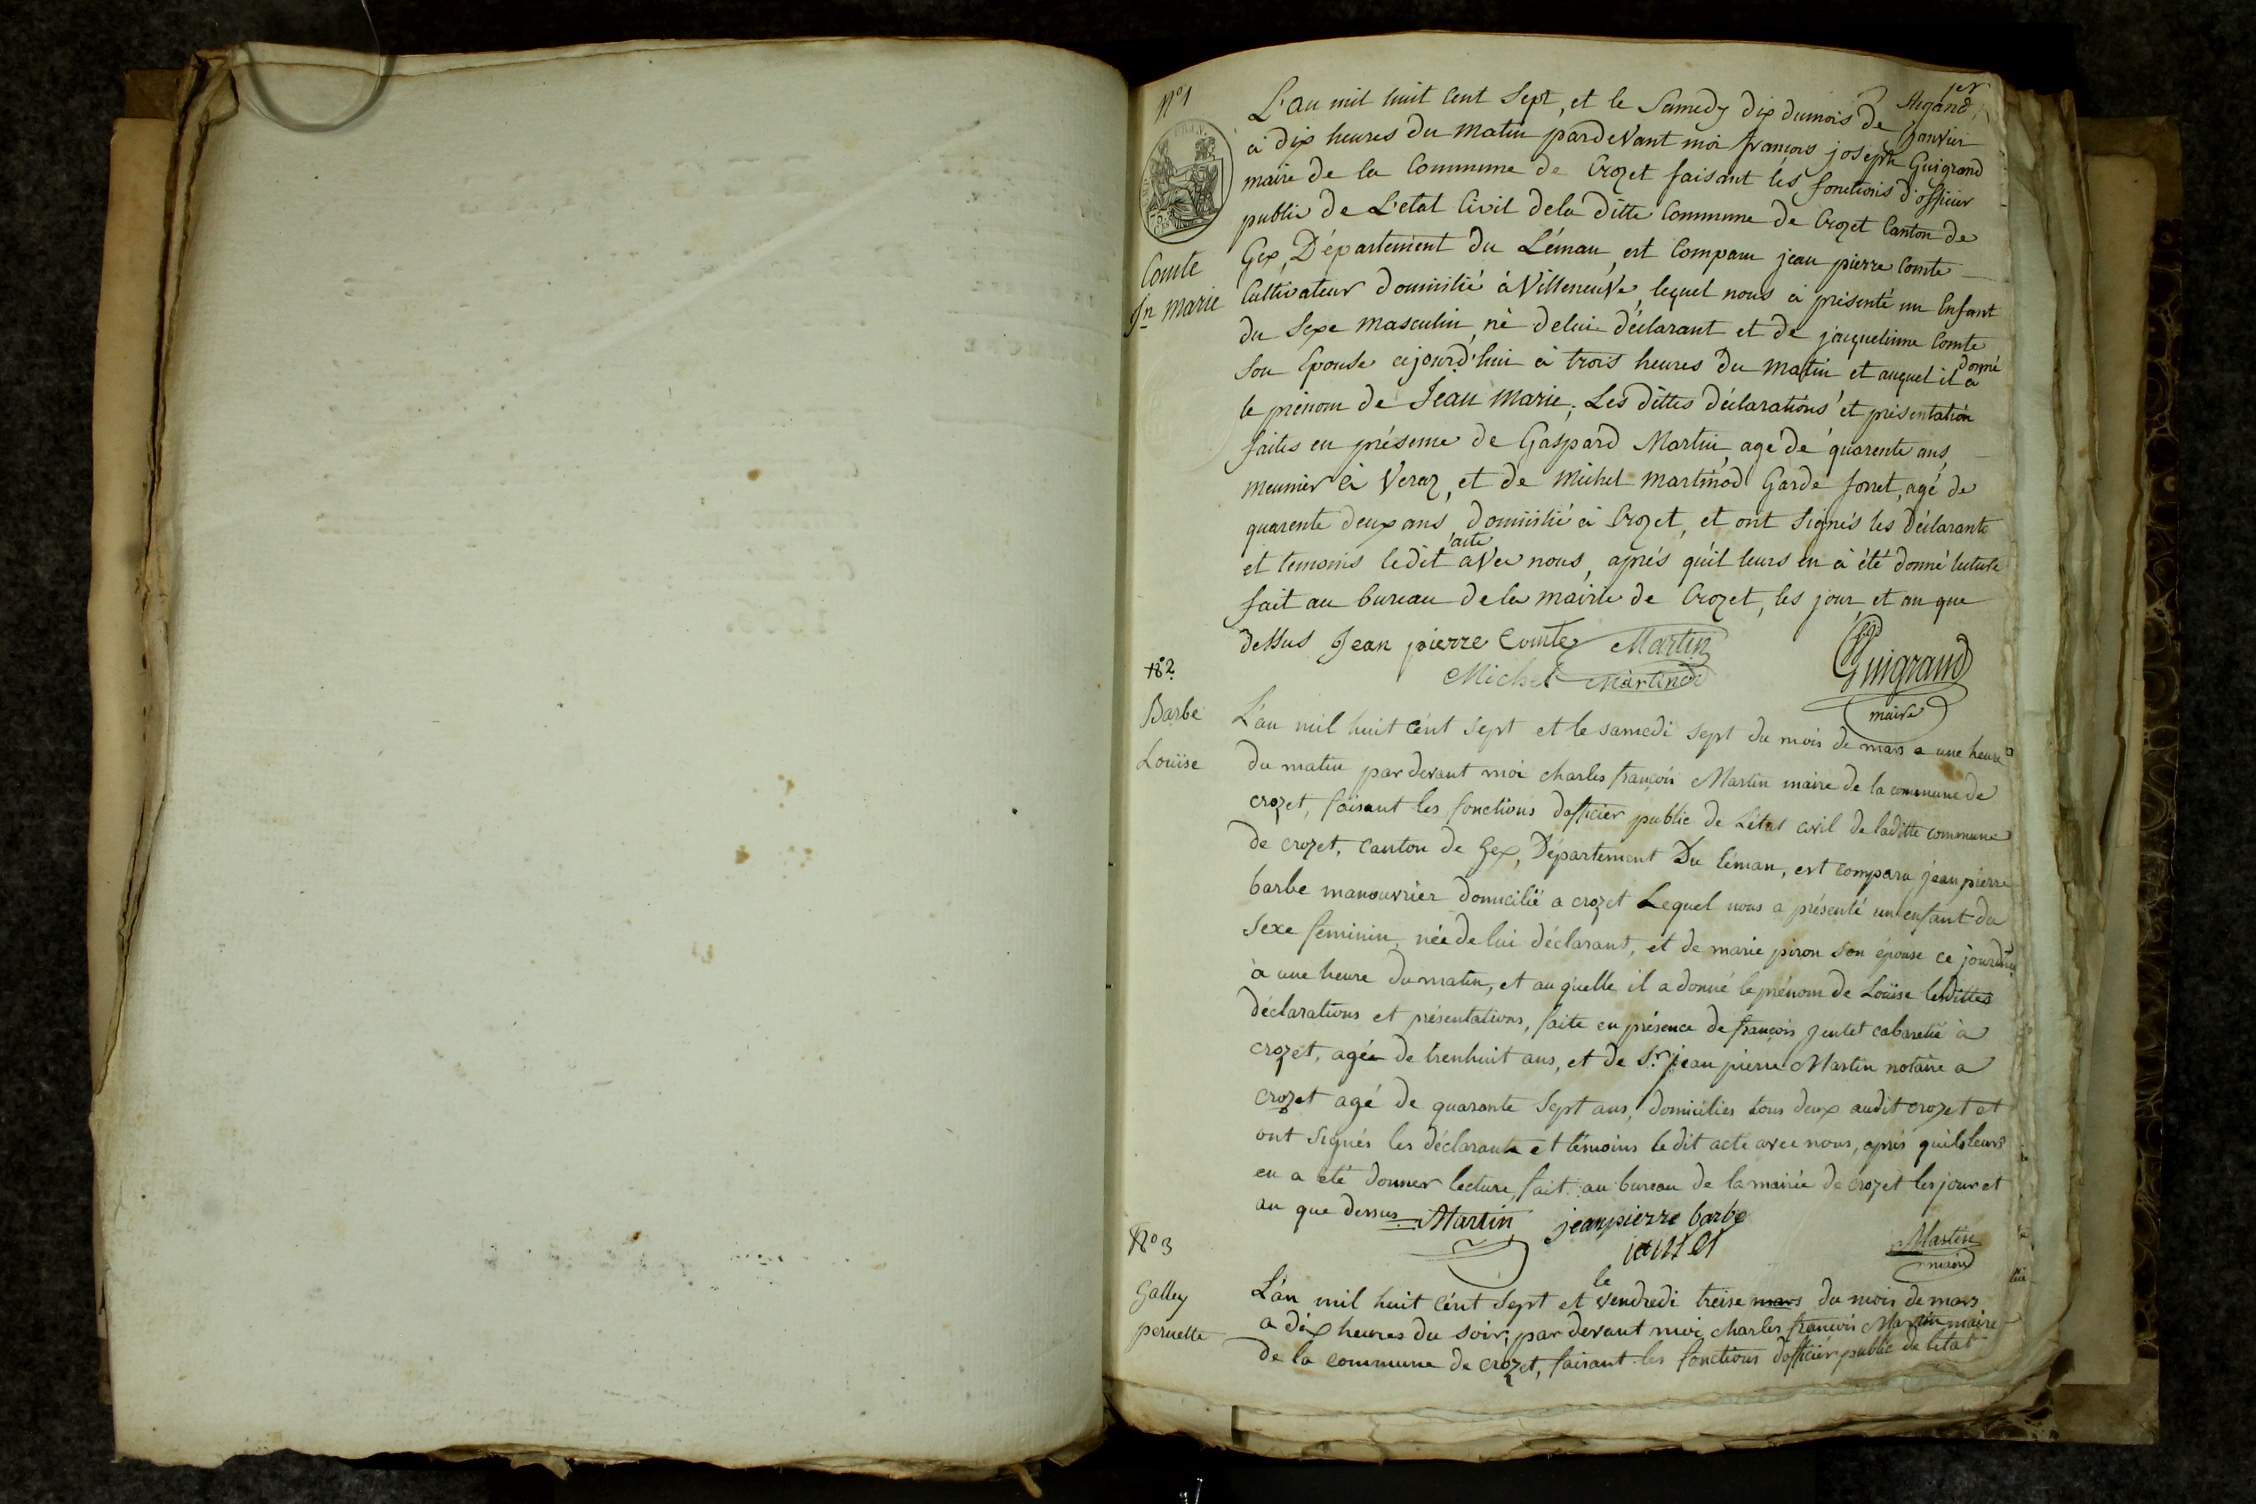 1er
N° 1
L'an mil huit cent Sept, et le Samedy dix dumois de janvier
à dix heures du matin pardevant moi françois joseph Guigrand
maire de la Commune de Crozet faisant les fonctions d'officier
public de L'etat Civil dela ditte Commune de Crozet Canton de
Comte
Jn marie
Gex, Département du Léman, est Comparu jean pierre Comte
Cultivateur domicilié à Villeneuve, lequel nous à présenté un Enfant
du Sexe masculin, né delui déclarant et de jacquelinne Comte
son Epouse cejourd'hui à trois heures du matin et auquel il a donné
le prénom de Jean Marie, Les dittes déclarations et présentation
faites en présence de Gaspard Martin, agé de quarente ans,
meunier à Veraz, et de Michel Martinod Garde forret, agé de
quarente deux ans, domicilié à Crozet, et ont Signés les déclarants
et temoins ledit acte avec nous, après qu'il leurs en à été donné lecture
fait au bureau dela Mairie de Crozet, les jour et an que
dessus Jean pierre Comte Martin
Michel Martinod
Guigrand
maire
N° 2
Barbe
Louïse
L'an mil huit cent Sept et le samedi sept du mois de mars a une heure
du matin par devant moi charles françois Martin maire de la commune de
crozet, faisant les fonctions dofficier public de L'état civil de laditte commune
de crozet, canton de Gex, Département Du léman, est comparu jean pierre
barbe manouvrier domicilié a crozet Lequel nous a présenté un enfant du
Sexe féminin, née de lui déclarant, et de marie piron son épouse ce jourdhui
à une heure du matin, et au quelle il a donné le prénom de Loüise lesdittes
déclarations et présentations, faite en présence de françois jentet cabaretié à
crozet, agée de trenhuit ans, et de Sr. jean pierre Martin notaire a
crozet agé de quarante Sept ans, domicilies tous deux audit crozet et
ont Signés les déclarants et témoins ledit acte avec nous, après quils leurs
en a été donner lecture, fait au bureau de la mairie de crozet les jour et
an que dessus Martin jeanpierre barbe
Martin
maire
N° 3
Galley
pernette
L'an mil huit cént Sept et le vendredi treise mars du mois de mars
a dix heures du soir, par devant moi charles françois Martin maire
de la commune de crozet, faisant les fonctions dofficier public de létat